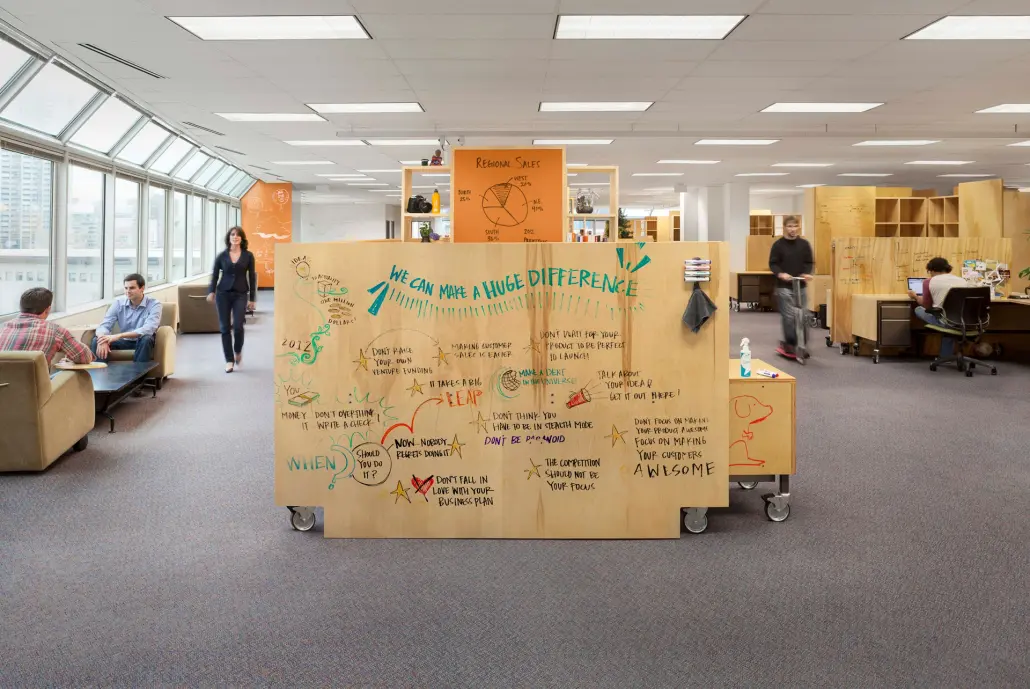 REGIONAL SALES
WEST
SOUTH
WE CAN MAKE A HUGE DIFFERENCE
IDEA
ONE MILLION
DOLLARS
2012
DON'T RAISE
YOUR OWN
VENTURE FUNDING
MAKING CUSTOMER
SALES IS EASIER
DON'T WAIT FOR YOUR
PRODUCT TO BE PERFECT
TO LAUNCH!
IT TAKES A BIG
LEAP
MAKE A DENT
IN THE UNIVERSE!
TALK ABOUT
YOUR IDEA &
GET IT OUT THERE!
YOU
MONEY DON'T OVERTHINK
IT WRITE A CHECK!
DON'T THINK YOU
HAVE TO BE IN STEALTH MODE
DON'T BE PARANOID
DON'T FOCUS ON MAKING
YOUR PRODUCT AWESOME
FOCUS ON MAKING
YOUR CUSTOMERS
AWESOME
NOW NOBODY
REGRETS DOING IT
WHEN
SHOULD
YOU DO
IT?
THE COMPETITION
SHOULD NOT BE
YOUR FOCUS
DON'T FALL IN
LOVE WITH YOUR
BUSINESS PLAN